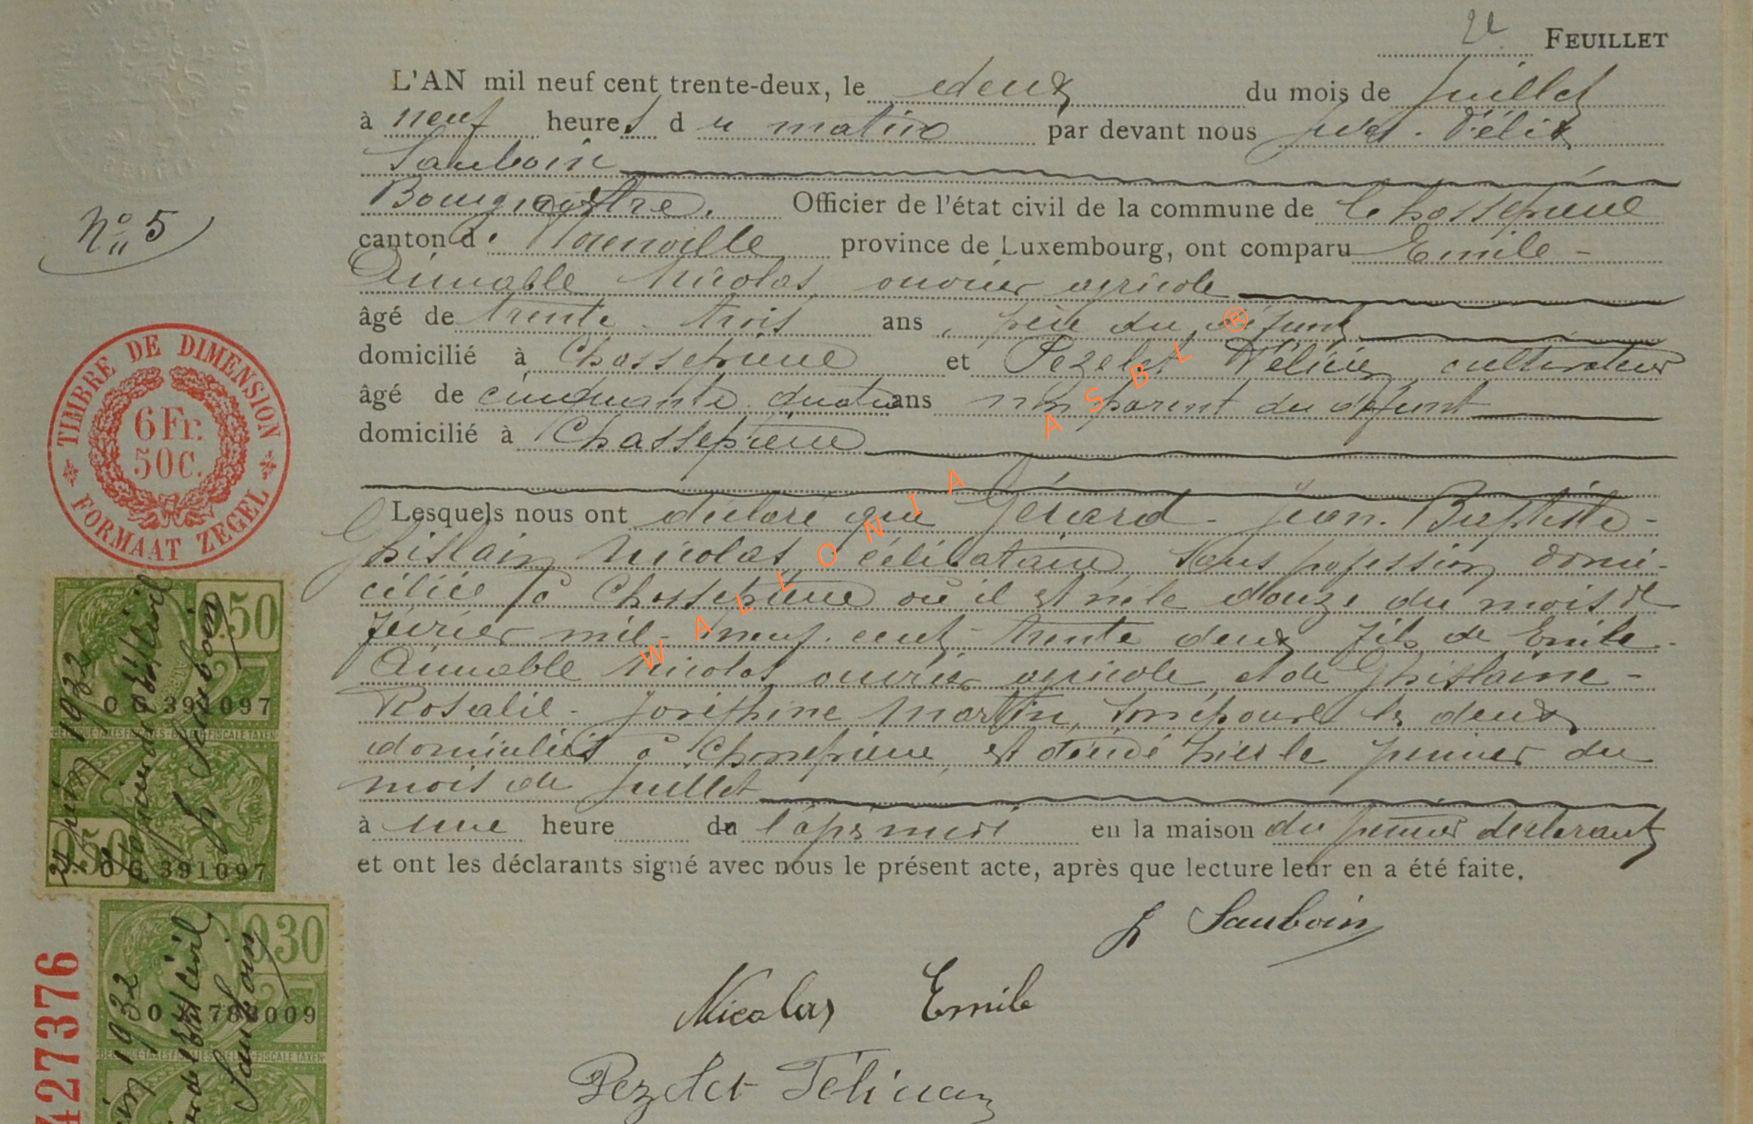 2e FEUILLET
L'AN mil neuf cent trente-deux, le deux du mois de Juillet
à neuf heures du matin par devant nous Jules - Félix
Sauboin
Bourgmestre. Officier de l'état civil de la commune de Chassepierre
canton de Florenville province de Luxembourg, ont comparu Emile -
Aimable Nicolas ouvrier agricole
âgé de trente - trois ans, père du défunt
domicilié à Chassepierre et Pezelet Félicien cultivateur
âgé de cinquante quatre ans non parent du défunt
domicilié à Chassepierre
Lesquels nous ont déclaré que Gérard - Jean - Baptiste -
Ghislain Nicolas, célibataire sans profession domi-
cilié à Chassepierre où il est né le douze du mois de
février mil - neuf - cent - trente deux fils de Emile -
Aimable Nicolas ouvrier agricole et de Ghislaine -
Rosalie - Joséphine Martin, son épouse les deux
domiciliés à Chassepierre, est décédé hier le premier du
mois de Juillet
à une heure de l'après midi en la maison du premier déclarant
et ont les déclarants signé avec nous le présent acte, après que lecture leur en a été faite.
Sauboin
Nicolas Emile
Pezelet Félicien
No 5
TIMBRE DE DIMENSION
6 Fr.
50 C.
FORMAAT ZEGEL
0.50
O G 391097
0.50
O G 391097
0.30
788009
427376
WALLONIA ASBL ®